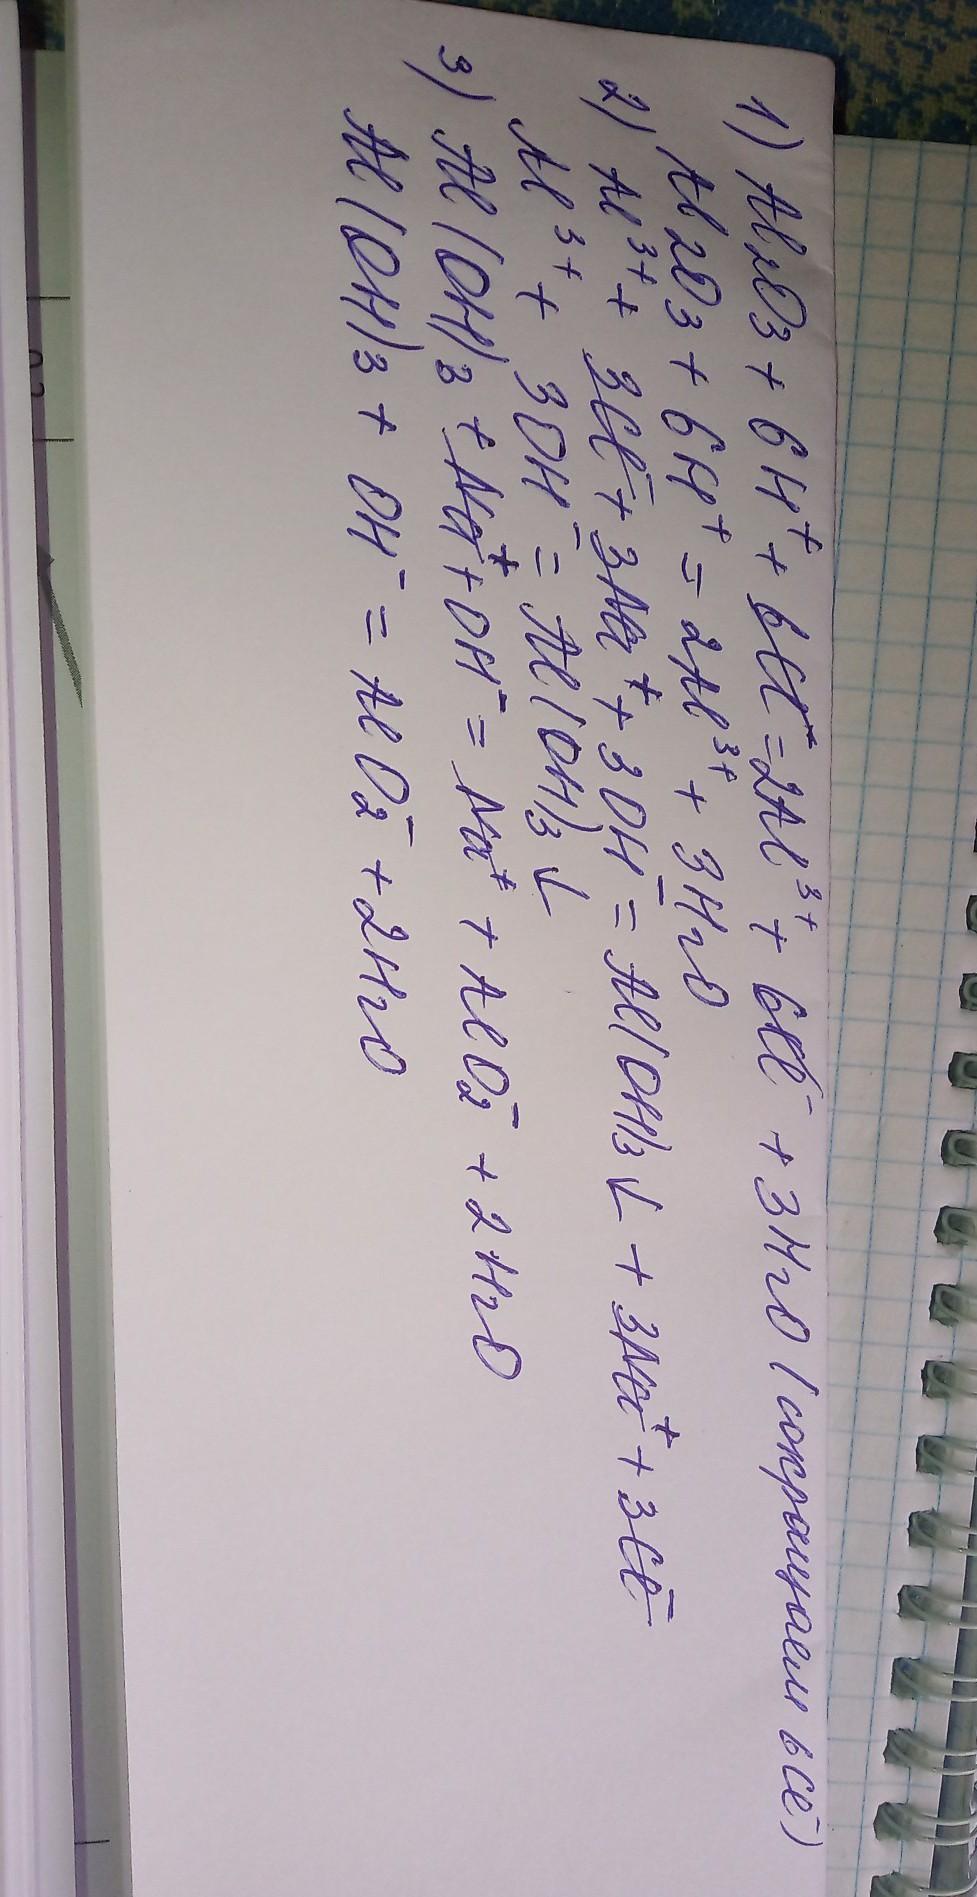 1) Al2O3 + 6H⁺ + 6Cl⁻ = 2Al³⁺ + 6Cl⁻ + 3H2O (сокращаем все)
Al2O3 + 6H⁺ = 2Al³⁺ + 3H2O
2) Al³⁺ + 3Cl⁻ + 3Na⁺ + 3OH⁻ = Al(OH)3↓ + 3Na⁺ + 3Cl⁻
Al³⁺ + 3OH⁻ = Al(OH)3↓
3) Al(OH)3 + Na⁺ + OH⁻ = Na⁺ + AlO2⁻ + 2H2O
Al(OH)3 + OH⁻ = AlO2⁻ + 2H2O